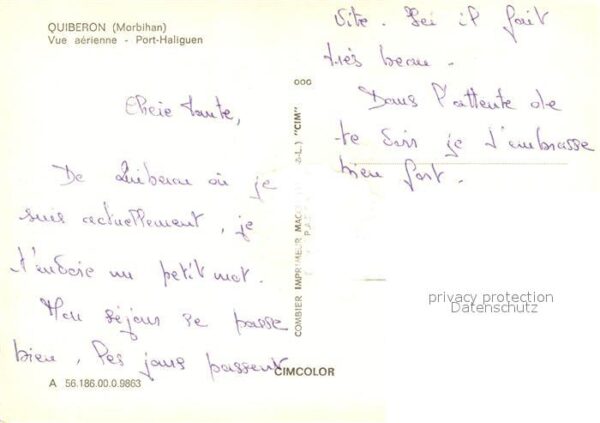 QUIBERON (Morbihan)
Vue aérienne - Port-Haliguen
Chère tante,
De Quiberon où je
suis actuellement, je
t'envoie un petit mot.
Mon séjour se passe
bien. Les jours passent
vite. Ici il fait
très beau.
Dans l'attente de
te voir je t'embrasse
bien fort.
COMBIER IMPRIMEUR MACON "CIM"
CIMCOLOR
A 56.186.00.0.9863
privacy protection
Datenschutz